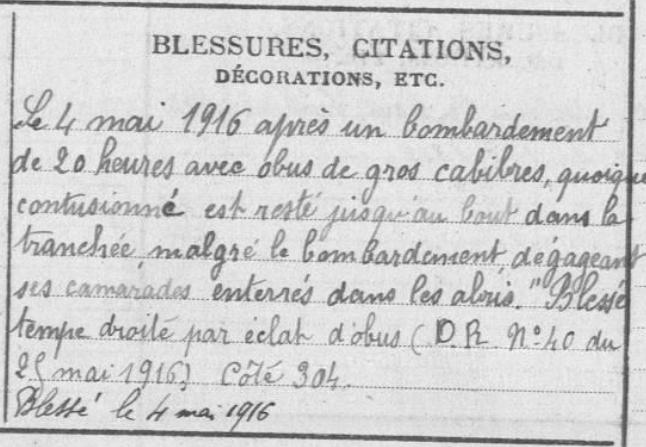 BLESSURES, CITATIONS,
DÉCORATIONS, ETC.
Le 4 mai 1916 après un bombardement
de 20 heures avec obus de gros cabibres, quoique
contusionné est resté jusqu'au bout dans la
tranchée, malgré le bombardement, dégageant
ses camarades enterrés dans les abris." Blessé
tempe droite par éclat d'obus (D.R. N° 40 du
25 mai 1916) Côte 304.
Blessé le 4 mai 1916